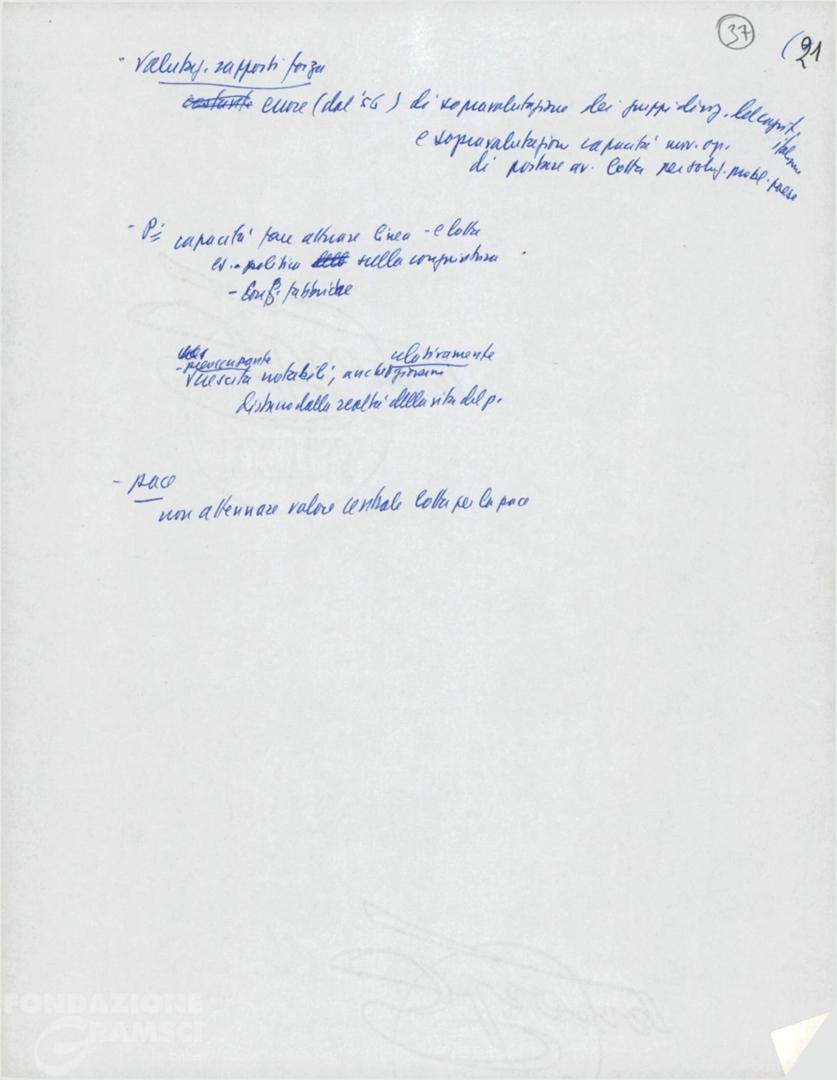 37
(21
- Valutaz. rapporti forza
costante errore (dal '56) di sopravalutazione dei gruppi dirig. del capit. italiano
e sopravalutazione capacità mov. op.
di portare av. lotta per soluz. probl. paese
- Pi capacità fare attuare linea - e lotta
politica sulla congiuntura
- Conf. fabbriche
- preoccupante relativamente
nascita notabili, anche giovani
distacco dalla realtà della vita del p.
- pace
non attenuare valore centrale lotta per la pace
FONDAZIONE
GRAMSCI